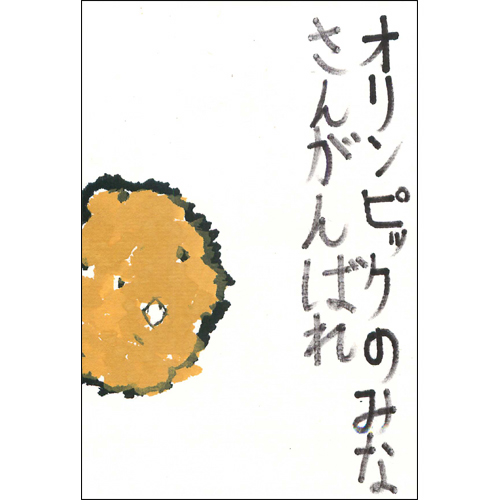 オリンピックのみな
さんがんばれ